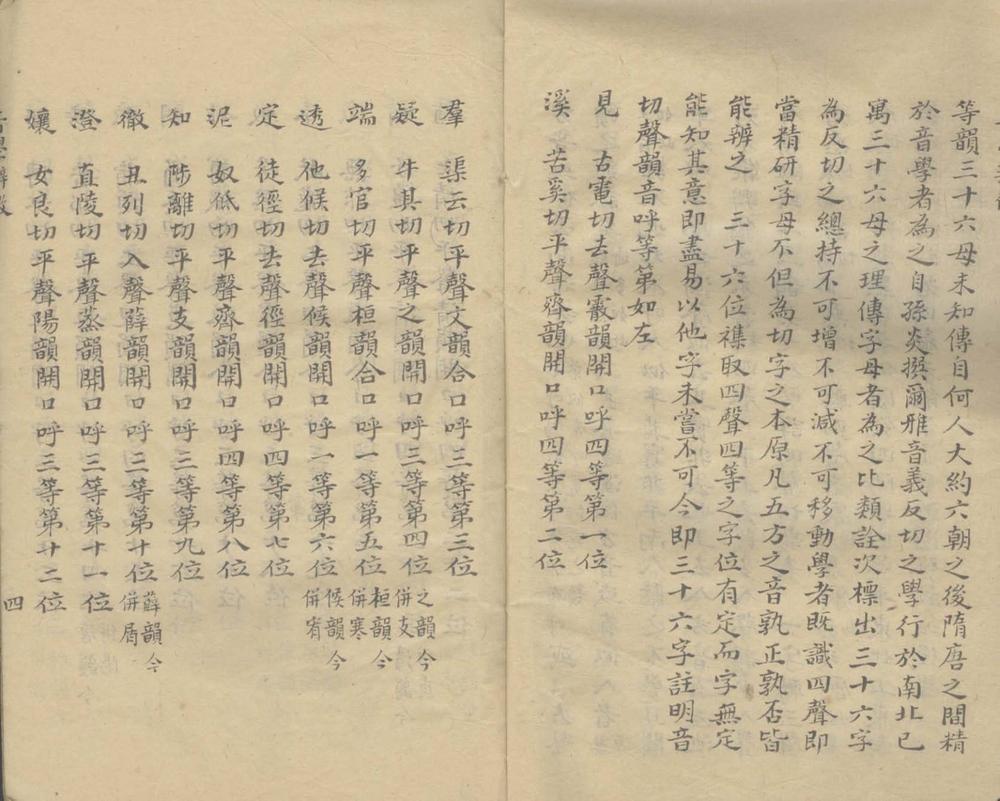 等韻三十六母未知傳自何人大約六朝之後隋唐之間精
於音學者為之自孫炎撰爾雅音義反切之學行於南北已
萬三十六母之理傳字母者為之比類詮次標出三十六字
為反切之總持不可增不可減不可移動學者既識四聲即
當精研字母不但為切字之本原凡五方之音孰正孰否皆
能辨之 三十六位襍取四聲四等之字位有定而字無定
能知其意即盡易以他字未嘗不可今即三十六字註明音
切聲韻音呼等第如左
見 古電切去聲霰韻開口呼四等第一位
溪 苦奚切平聲齊韻開口呼四等第二位
羣 渠云切平聲文韻合口呼三等第三位
疑 牛其切平聲之韻開口呼三等第四位 之韻今併支
端 多官切平聲桓韻合口呼一等第五位 桓韻今併寒
透 他候切去聲候韻開口呼一等第六位 候韻今併宥
定 徒徑切去聲徑韻開口呼四等第七位
泥 奴低切平聲齊韻開口呼四等第八位
知 陟離切平聲支韻開口呼三等第九位
徹 丑列切入聲薛韻開口呼三等第十位 薛韻今併屑
澄 直陵切平聲蒸韻開口呼三等第十一位
孃 女良切平聲陽韻開口呼三等第十二位
四